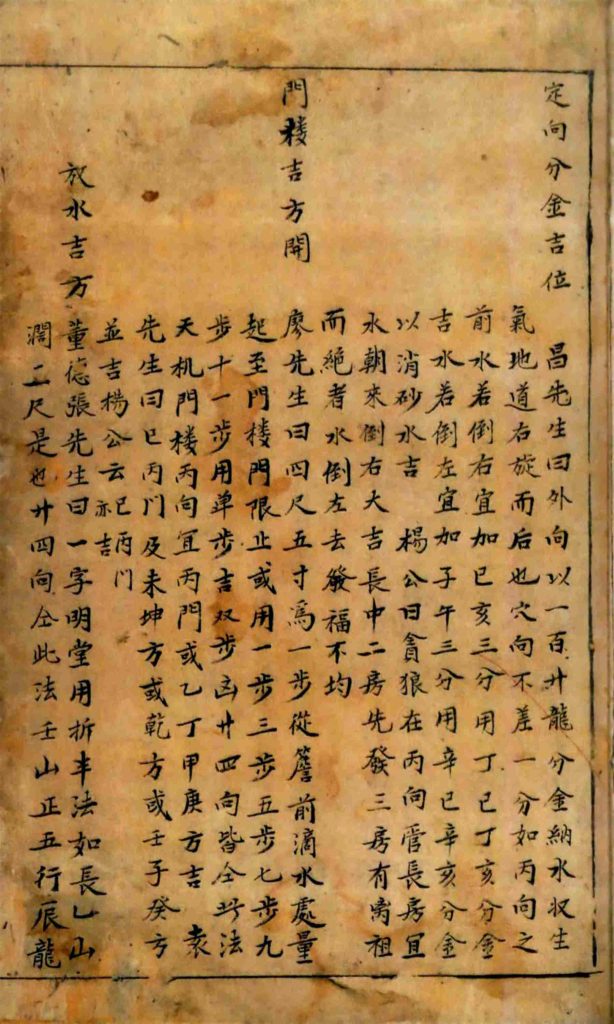 定向分金吉位
昌先生曰外向以一百廿龍分金納水収生
氣地道右旋而后也穴向不差一分如丙向之
前水若倒右宜加巳亥三分用丁巳丁亥分金
吉水若倒左宜加子午三分用辛巳辛亥分金
以消砂水吉 楊公曰貪狼在丙向管長房宜
水朝来倒右大吉長中二房先發三房有离祖
而絕者水倒左去發福不均
門楼吉方開
廖先生曰四尺五寸爲一步從簷前滴水處量
起至門楼門限止或用一步三步五步七步九
步十一步用单步吉双步凶廿四向皆仝此法
天机門楼丙向宜丙門或乙丁甲庚方吉 袁
先生曰巳丙門及未坤方或乾方或壬子癸方
並吉楊公云巳丙門亦吉
放水吉方
董德張先生曰一字明堂用折半法如長乙山
濶二尺是也廿四向仝此法壬山正五行辰龍